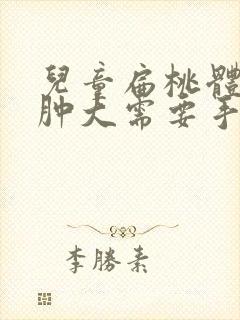 兒童扁桃體
肿大需要手
李勝素